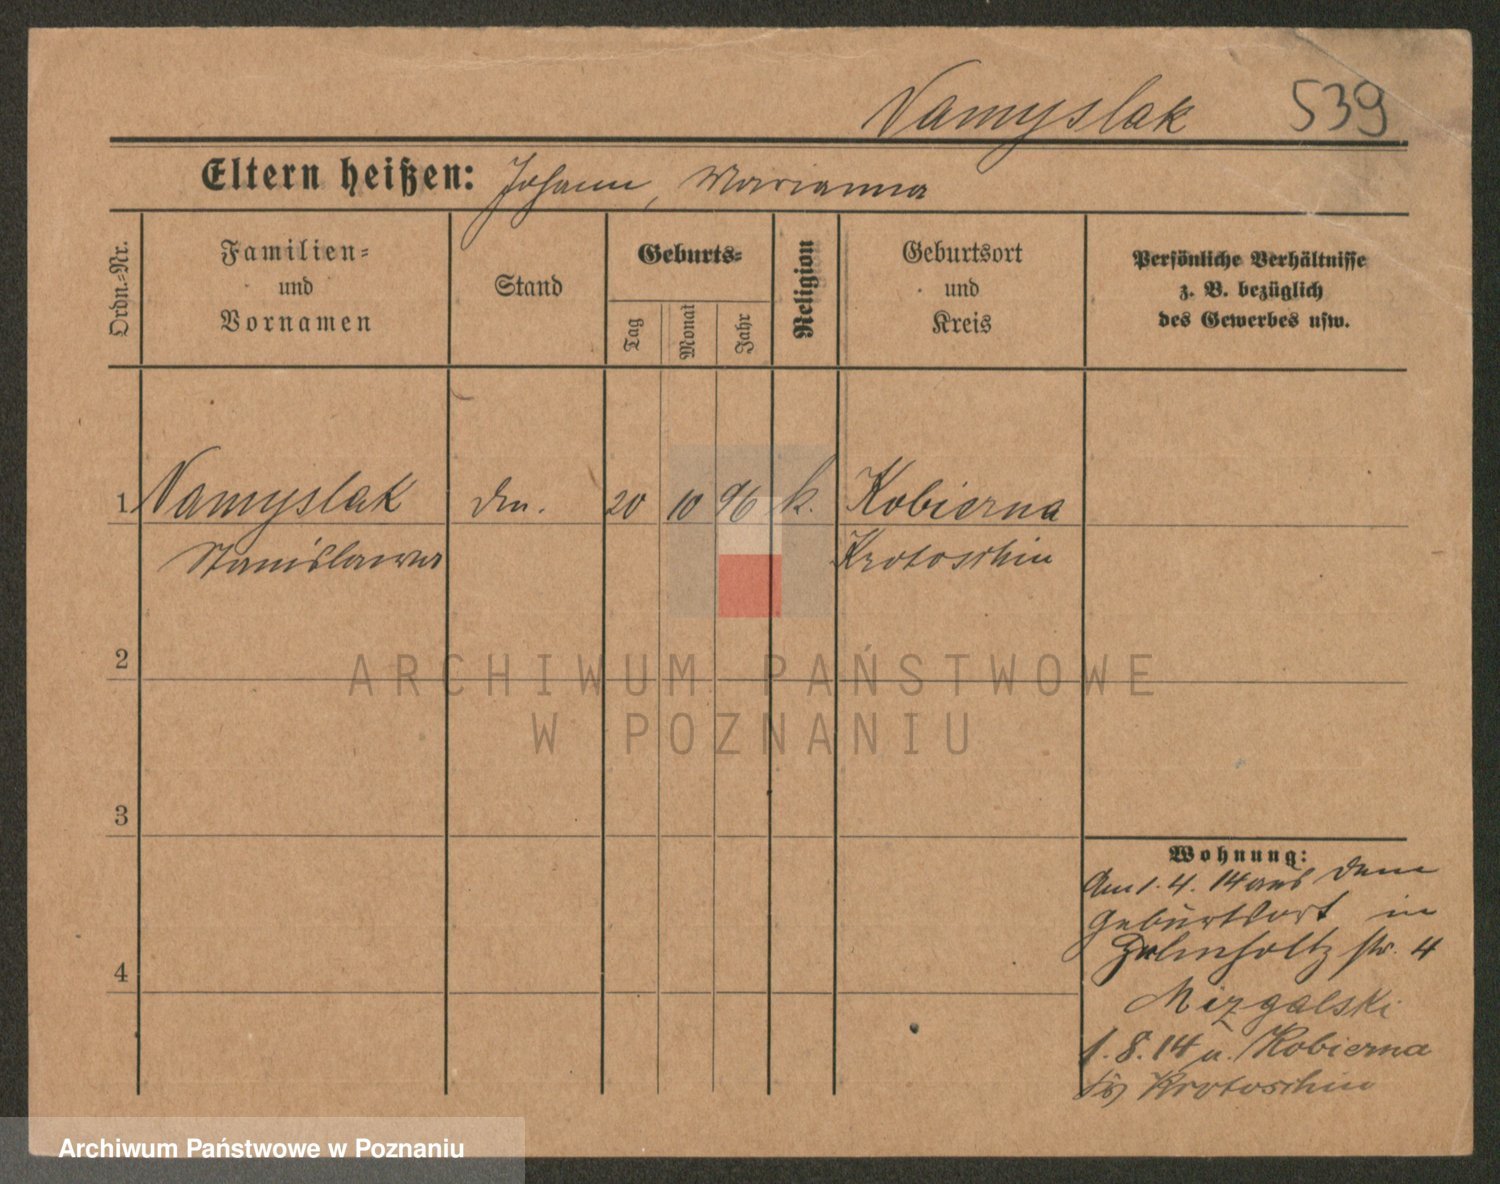 Namyslak 539
Eltern heißen: Johann, Marianna
Ordn.-Nr.
Familien-
und
Vornamen
Stand
Geburts-
Tag
Monat
Jahr
Religion
Geburtsort
und
Kreis
Persönliche Verhältnisse
z. B. bezüglich
des Gewerbes usw.
1 Namyslak 20 10 96 k. Kobierna
Stanislawa Krotoschin
2
3
4
Wohnung:
Am 1.4.14 aus dem
Geburtsort in
str. 4
Mizgalski
1.8.14 n. Kobierna
Krotoschin
ARCHIWUM PAŃSTWOWE
W POZNANIU
Archiwum Państwowe w Poznaniu